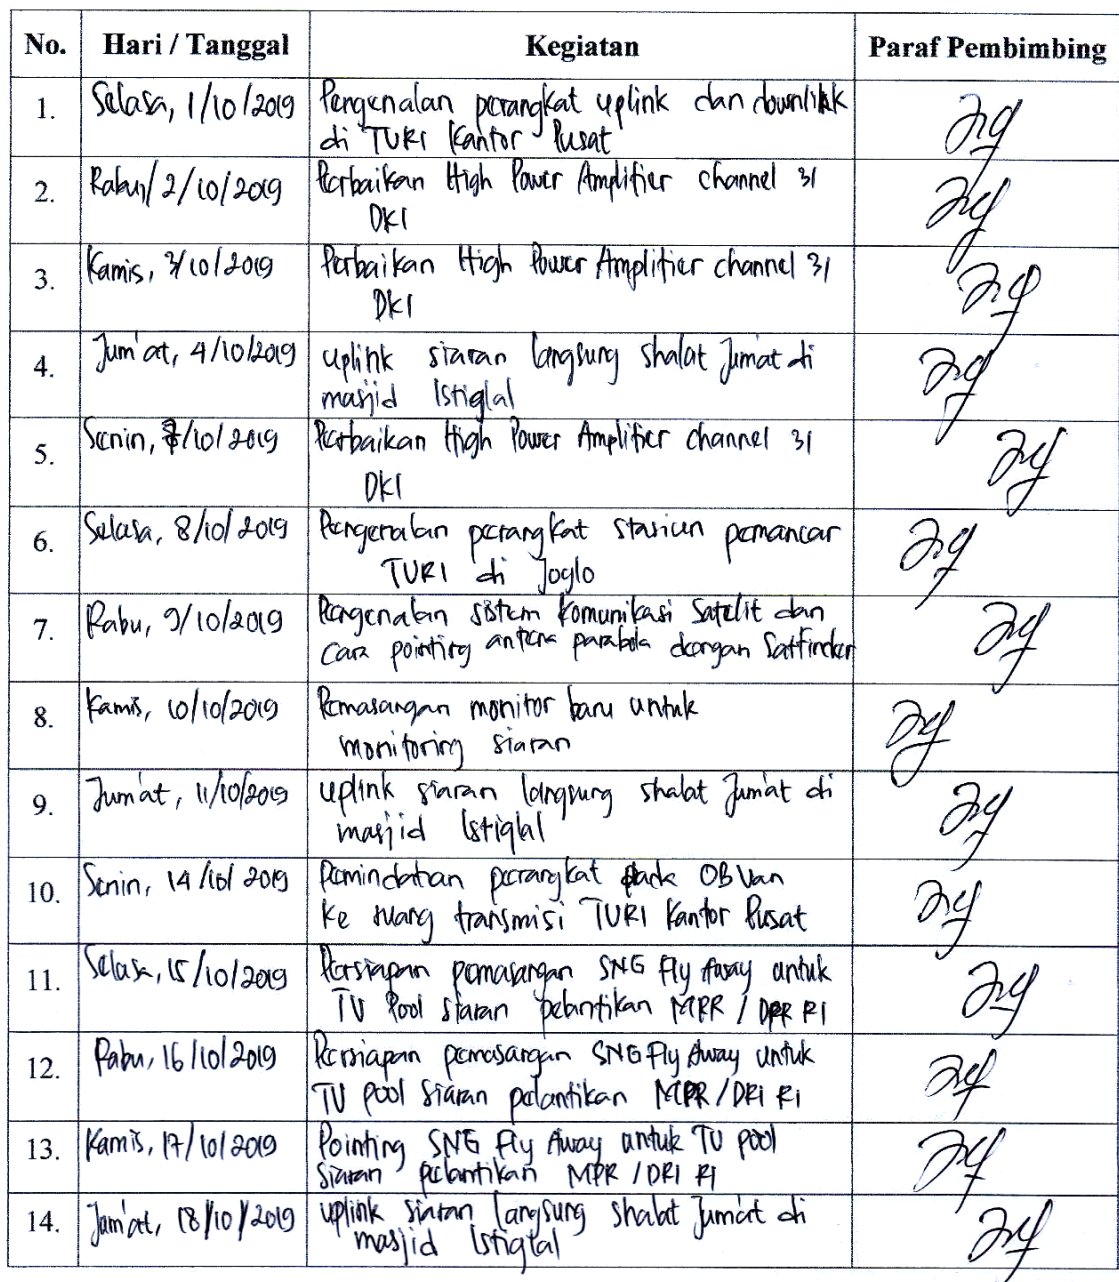 No. Hari / Tanggal Kegiatan Paraf Pembimbing
1. Selasa, 1/10/2019 Pengenalan perangkat uplink dan downlink
di TVRI Kantor Pusat
2. Rabu/ 2/10/2019 Perbaikan High Power Amplifier channel 31
DKI
3. Kamis, 3/10/2019 Perbaikan High Power Amplifier channel 31
DKI
4. Jum'at, 4/10/2019 uplink siaran langsung shalat Jumat di
masjid Istiqlal
5. Senin, 7/10/2019 Perbaikan High Power Amplifier channel 31
DKI
6. Selasa, 8/10/2019 Pengenalan perangkat stasiun pemancar
TVRI di Joglo
7. Rabu, 9/10/2019 Pengenalan sistem komunikasi Satelit dan
cara pointing antena parabola dengan Satfinder
8. Kamis, 10/10/2019 Pemasangan monitor baru untuk
monitoring siaran
9. Jum'at, 11/10/2019 uplink siaran langsung shalat Jum'at di
masjid Istiqlal
10. Senin, 14/10/2019 Pemindahan perangkat pada OB Van
ke ruang transmisi TVRI Kantor Pusat
11. Selasa, 15/10/2019 Persiapan pemasangan SNG Fly Away untuk
TV Pool siaran pelantikan MPR / DPR RI
12. Rabu, 16/10/2019 Persiapan pemasangan SNG Fly Away untuk
TV Pool siaran pelantikan MPR / DRI RI
13. Kamis, 17/10/2019 Pointing SNG Fly Away untuk TV pool
Siaran pelantikan MPR / DRI RI
14. Jum'at, 18/10/2019 uplink siaran langsung shalat Jum'at di
masjid Istiqlal